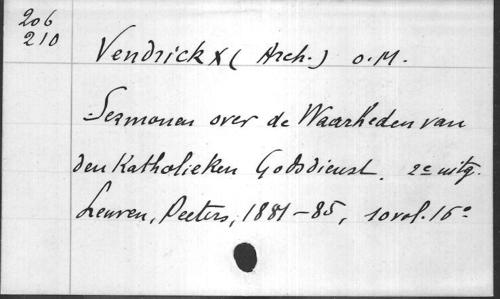 206
210
Vendrickx (Arch.) O.M.
Sermonen over de Waarheden van
den Katholieken Godsdienst. 2e uitg.
Leuven, Peeters, 1881-85, 10 vol. 16°